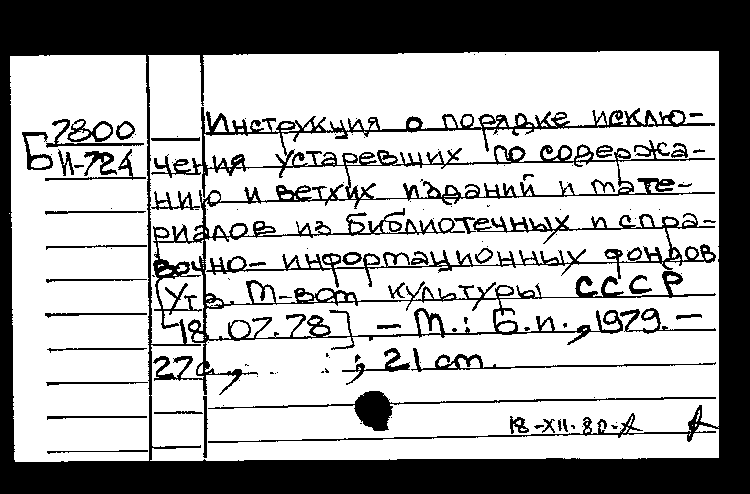 7800
Б И-724
Инструкция о порядке исклю-
чения устаревших по содержа-
нию и ветхих изданий и мате-
риалов из библиотечных и спра-
вочно-информационных фондов
[Утв. М-вом культуры СССР
18.07.78]. - М.: Б.и., 1979. -
27с, ; 21 cm.
18-XII-80-